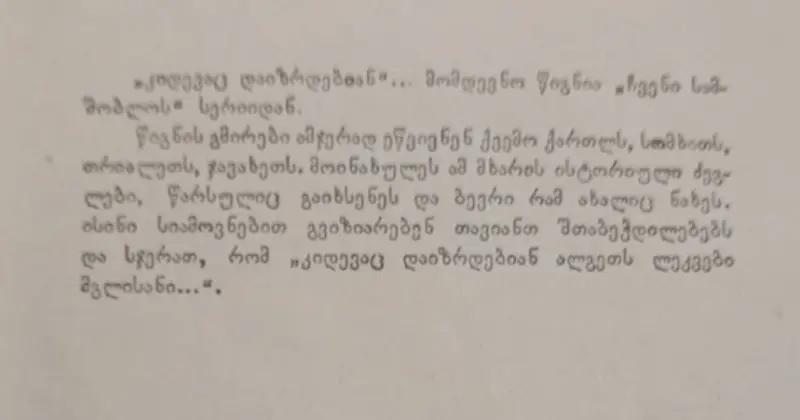 „კიდევაც დაიზრდებიან“... მომდევნო წიგნია „ჩვენი სამ-
შობლოს“ სერიიდან.
წიგნის გმირები ამჯერად ეწვივნენ ქვემო ქართლს, სომხითს,
თრიალეთს, ჯავახეთს. მოინახულეს ამ მხარის ისტორიული ძეგ-
ლები, წარსულიც გაიხსენეს და ბევრი რამ ახალიც ნახეს.
ისინი სიამოვნებით გვიზიარებენ თავიანთ შთაბეჭდილებებს
და სჯერათ, რომ „კიდევაც დაიზრდებიან ალგეთს ლეკვები
მგლისანი...“.